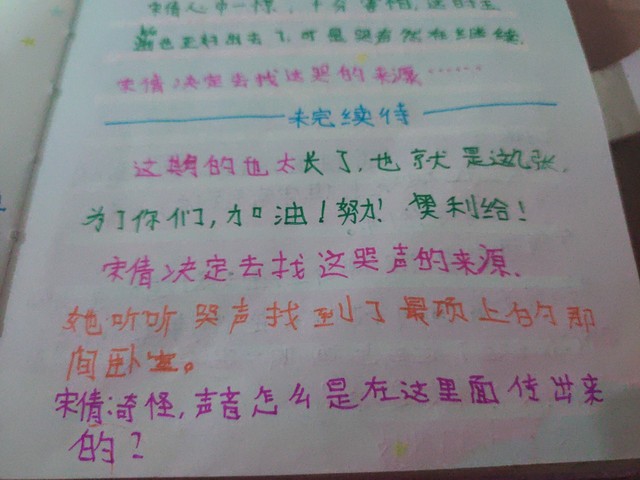 宋倩心中一惊，十分害怕，这时王
也正好出去了，可是哭声然在继续，
宋倩决定去找这哭的来源……
未完续待
这期的也太长了，也就是这几张，
为了你们，加油！努力！奥利给！
宋倩决定去找这哭声的来源．
她听听哭声找到了最顶上的那
间卧室。
宋倩：奇怪，声音怎么是在这里面传出来
的？